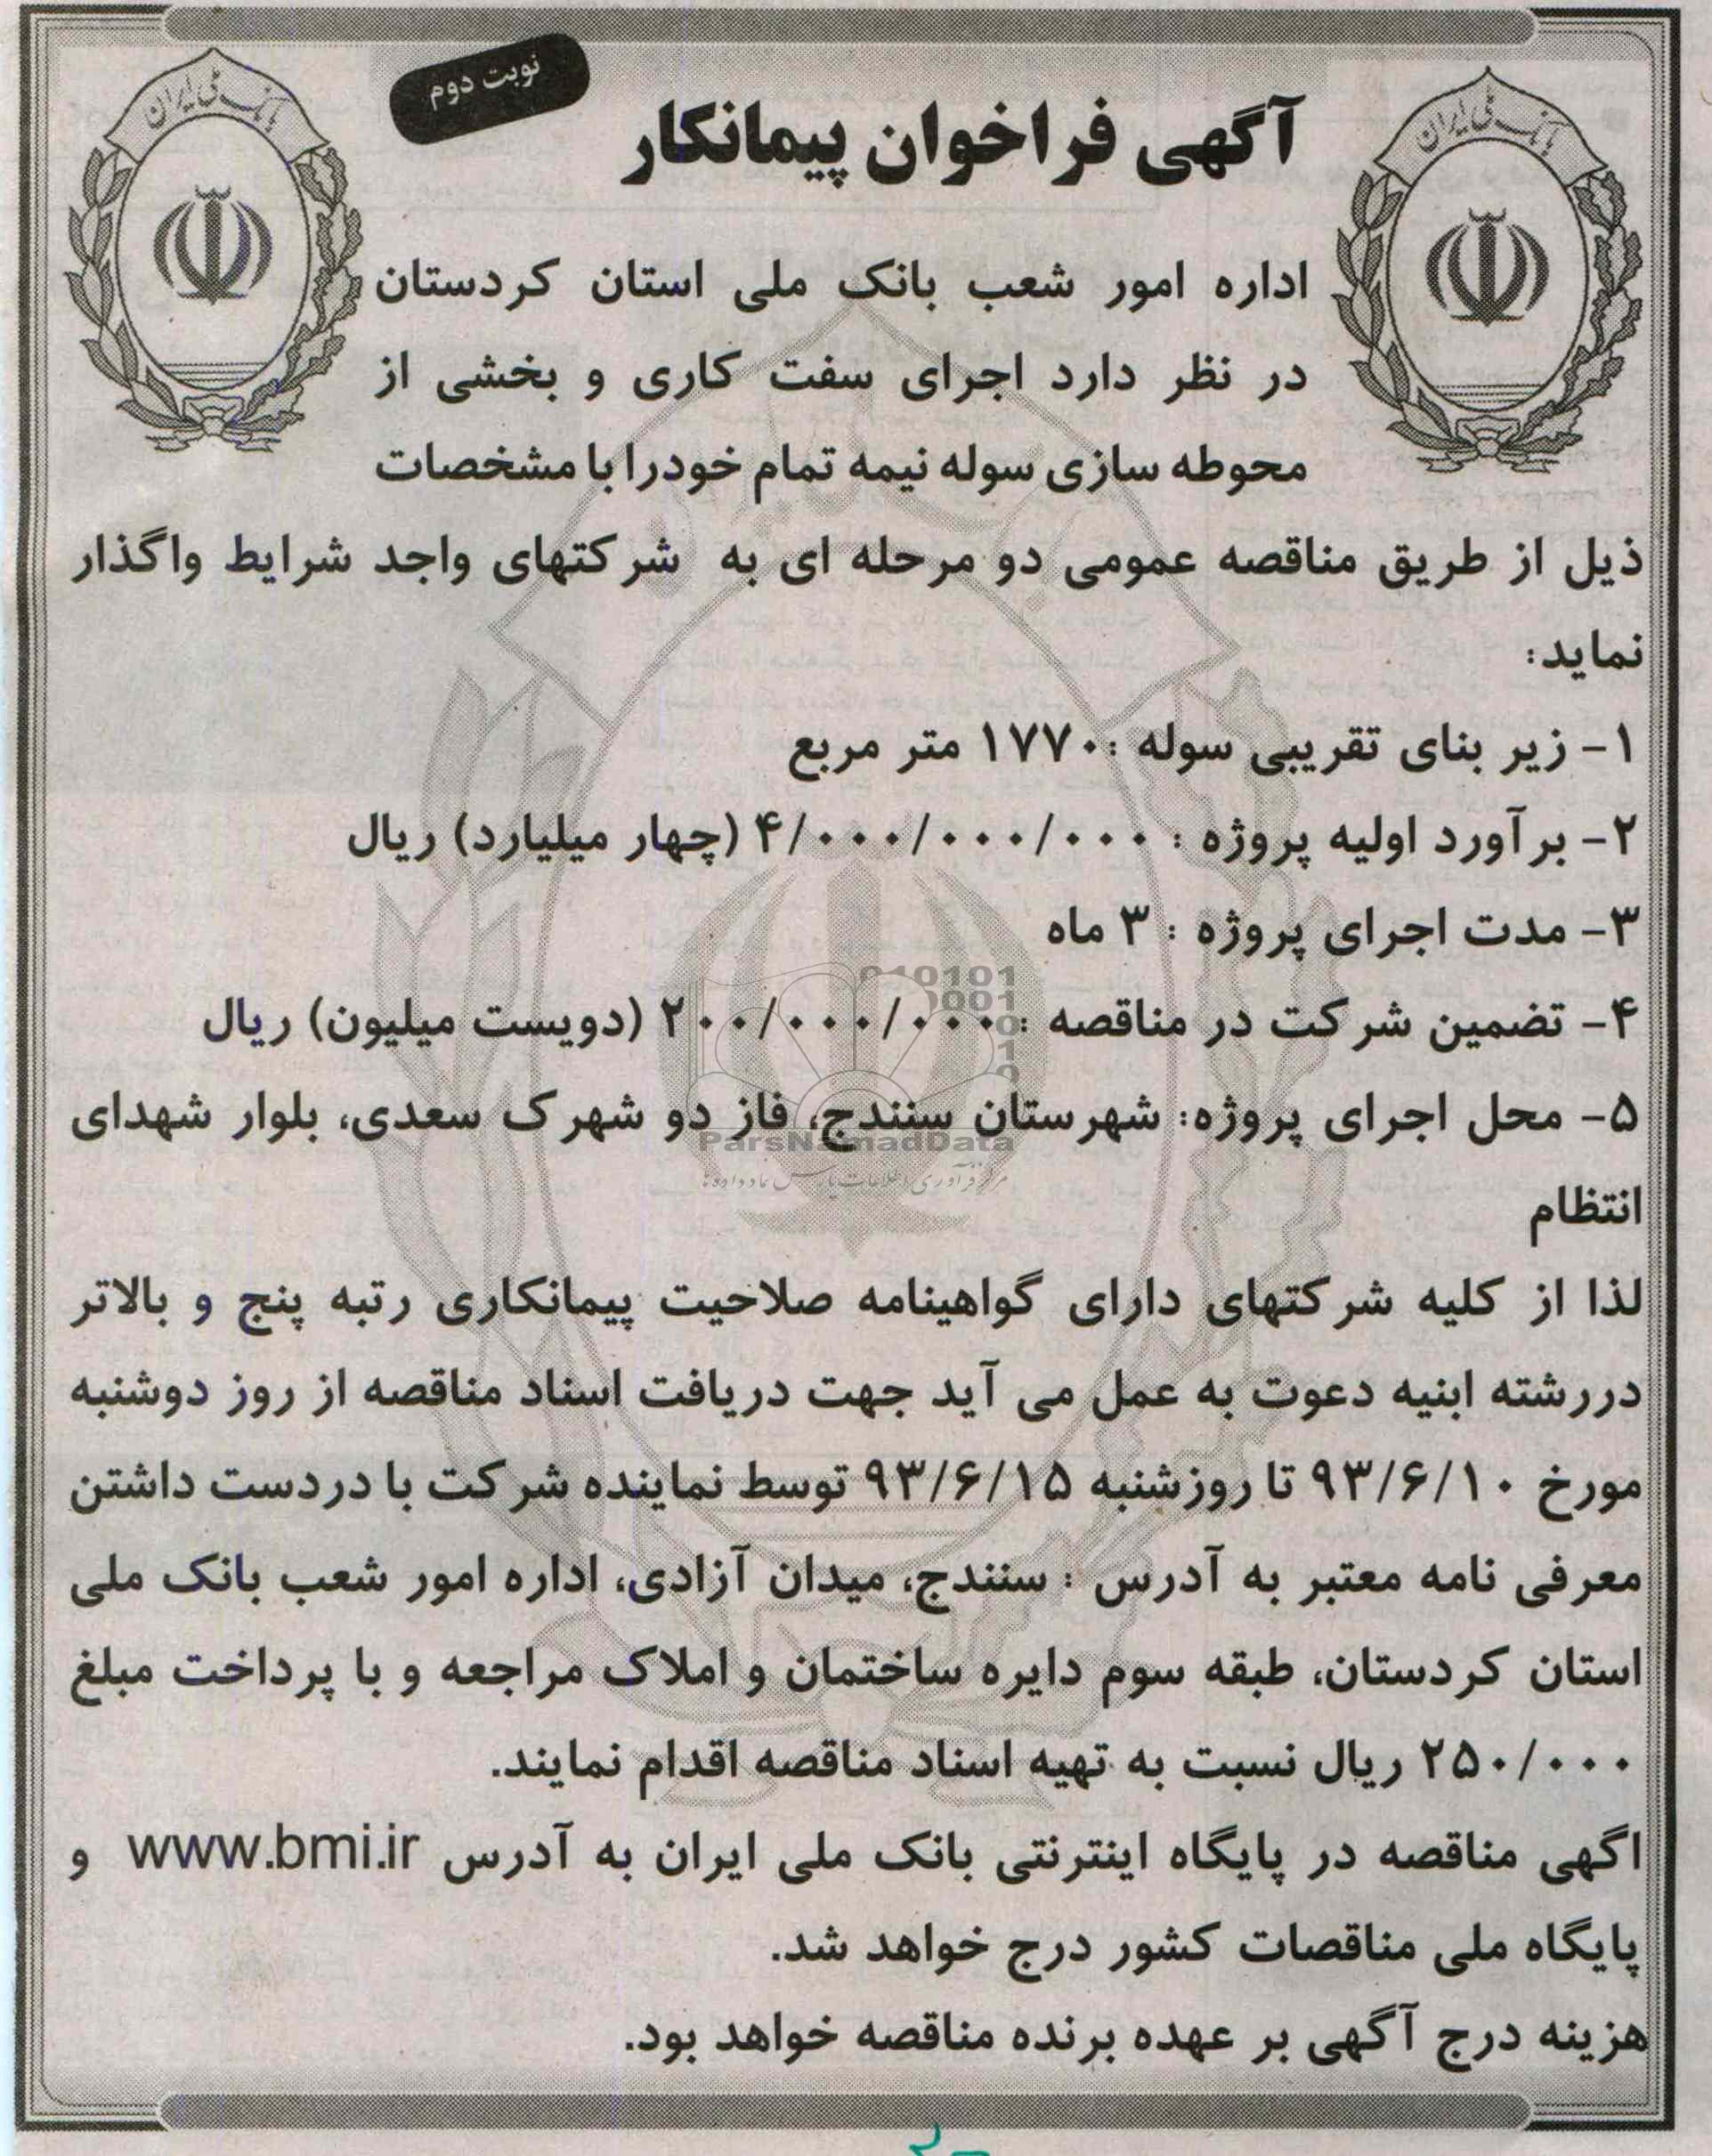 نوبت دوم
بانک ملی ایران
بانک ملی ایران
آگهی فراخوان پیمانکار
اداره امور شعب بانک ملی استان کردستان
در نظر دارد اجرای سفت کاری و بخشی از
محوطه سازی سوله نیمه تمام خودرا با مشخصات
ذیل از طریق مناقصه عمومی دو مرحله ای به شرکتهای واجد شرایط واگذار
نماید:
۱- زیر بنای تقریبی سوله :۱۷۷۰ متر مربع
۲- برآورد اولیه پروژه : ۴/۰۰۰/۰۰۰/۰۰۰ (چهار میلیارد) ریال
۳- مدت اجرای پروژه : ۳ ماه
۴- تضمین شرکت در مناقصه : ۲۰۰/۰۰۰/۰۰۰ (دویست میلیون) ریال
۵- محل اجرای پروژه: شهرستان سنندج، فاز دو شهرک سعدی، بلوار شهدای
انتظام
لذا از کلیه شرکتهای دارای گواهینامه صلاحیت پیمانکاری رتبه پنج و بالاتر
دررشته ابنیه دعوت به عمل می آید جهت دریافت اسناد مناقصه از روز دوشنبه
مورخ ۹۳/۶/۱۰ تا روزشنبه ۹۳/۶/۱۵ توسط نماینده شرکت با دردست داشتن
معرفی نامه معتبر به آدرس : سنندج، میدان آزادی، اداره امور شعب بانک ملی
استان کردستان، طبقه سوم دایره ساختمان و املاک مراجعه و با پرداخت مبلغ
۲۵۰/۰۰۰ ریال نسبت به تهیه اسناد مناقصه اقدام نمایند.
اگهی مناقصه در پایگاه اینترنتی بانک ملی ایران به آدرس www.bmi.ir و
پایگاه ملی مناقصات کشور درج خواهد شد.
هزینه درج آگهی بر عهده برنده مناقصه خواهد بود.
ParsNamadData
مرکز فرآوری اطلاعات پارس نماد داده ها